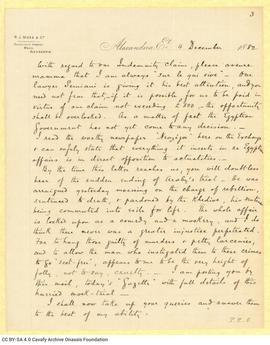 3
R. J. Moss & Co.
Alexandria
Alexandria Et. 4 December 1882
With regard to our Indemnity Claim, please assure
mamma that I am always "sur le qui vive" - Our
Lawyer is giving it his best attention, and you
need not fear that, if it is possible for us to be paid in
virtue of our claim not exceeding £ 800, the opportunity
shall be overlooked. As a matter of fact the Egyptian
Government has not yet come to any decision. -
I read the worthy newspaper here on the Tuesdays
& can safely state that everything it inserts in re Egyptian
affairs is in direct opposition to actualities. -
By the time this letter reaches you, you will doubtless
hear of the sudden ending of Araby's trial: he was
arraigned yesterday morning on the charge of rebellion,
sentenced to death, & pardoned by the Khedive, his sentence
being commuted into exile for life. The whole affair
is looked upon as a comedy, nay mockery, and I do
think there never was a greater injustice perpetrated.
For to hang those guilty of murders & petty larcenies,
and to allow the man who instigated them to these crimes
to go "scot-free", appears to me to be the very height of
folly, not to say, cruelty. - I am posting you by
this mail, today's "Gazette" with full details of this
hurried mock-trial. -
I shall now take up your queries and answer them
to the best of my ability.
P.T.O.
CC BY-SA 4.0 Cavafy Archive Onassis Foundation